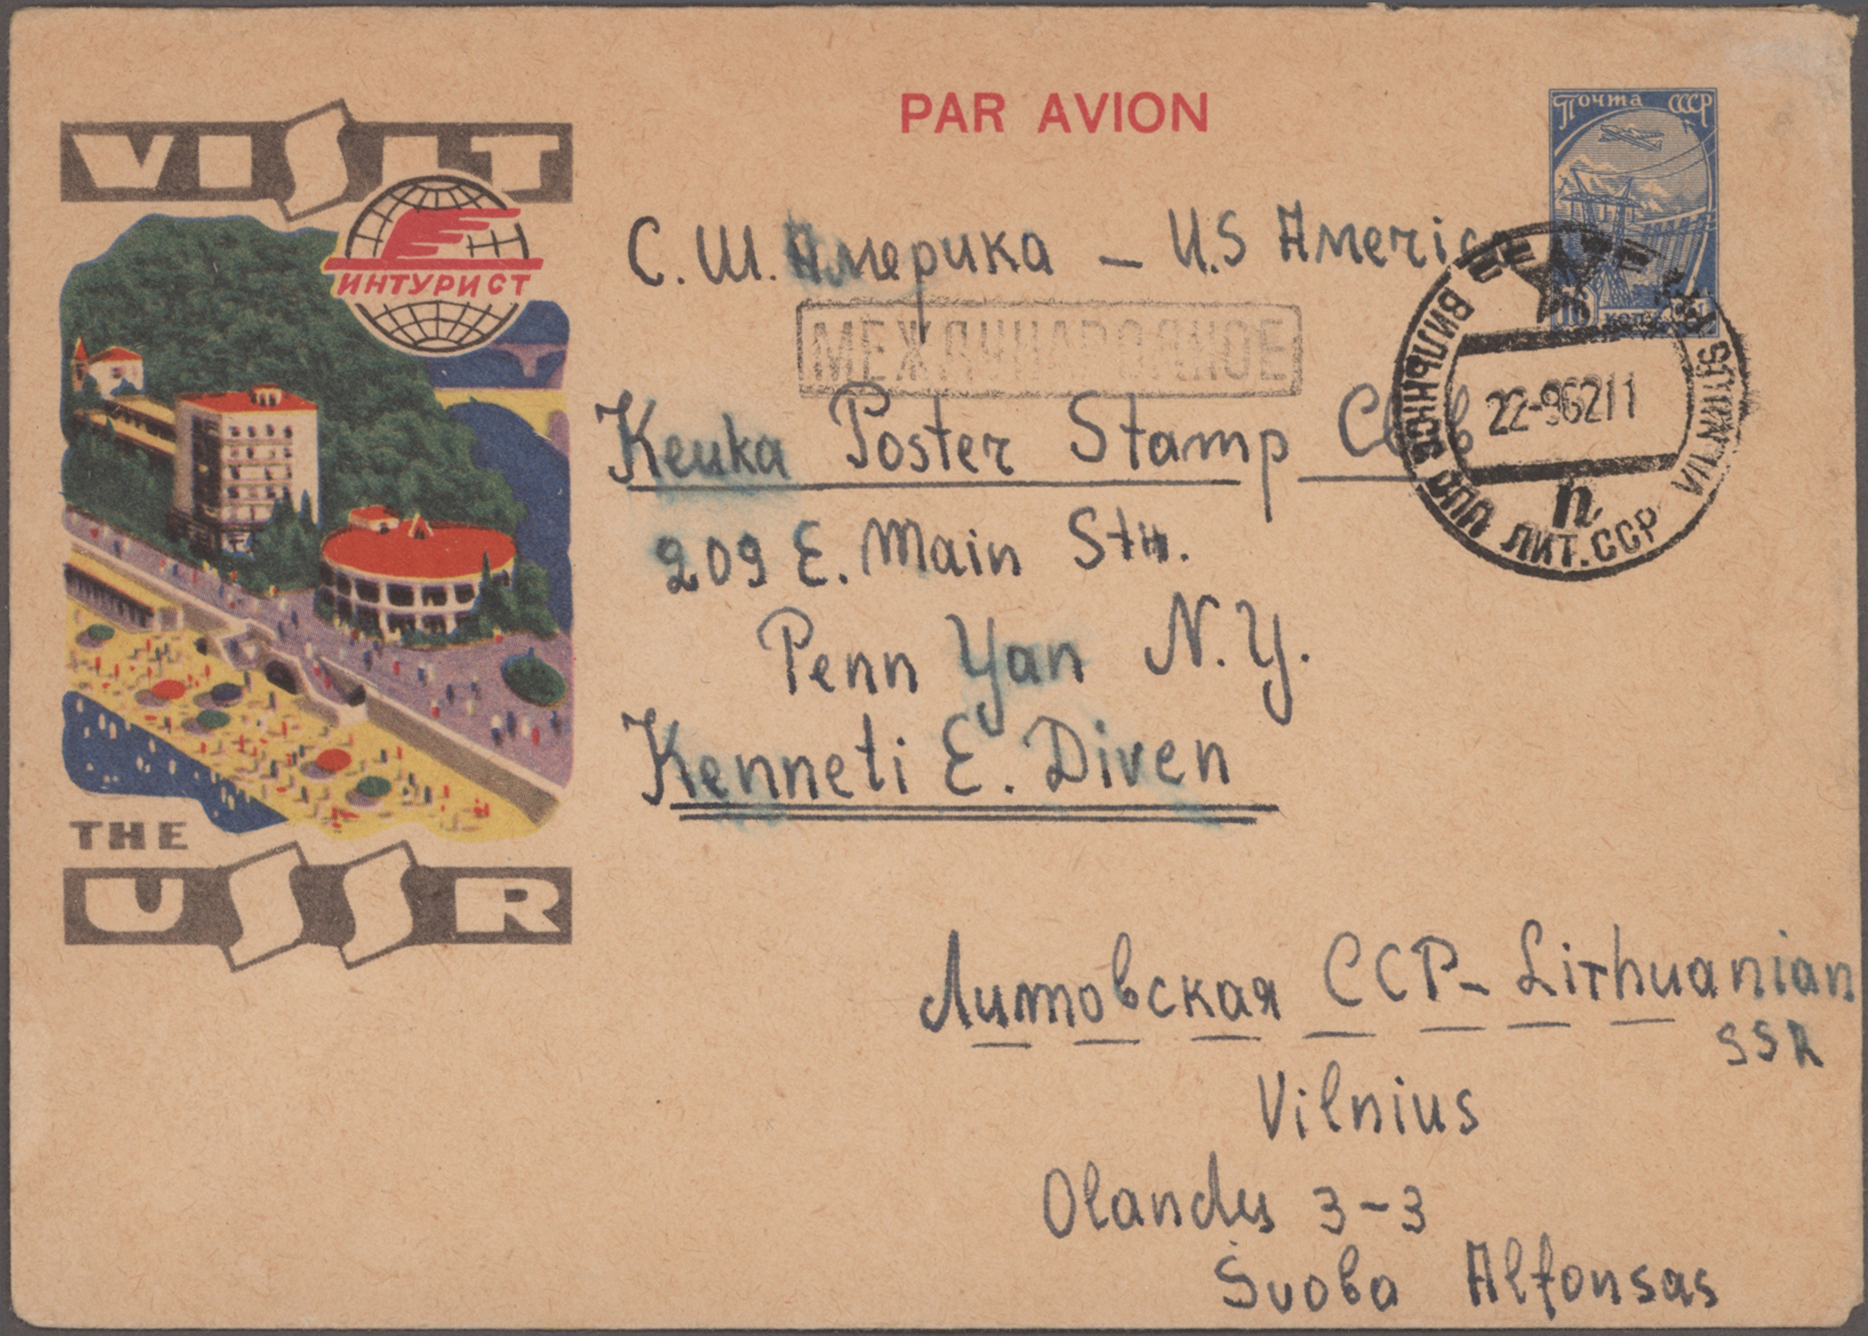 VISIT
ИНТУРИСТ
THE
USSR
PAR AVION
Почта СССР
коп
С. Ш. Америка - U.S America
МЕЖДУНАРОДНОЕ
Keuka Poster Stamp Club
209 E. Main Str.
Penn Yan N.Y.
Kenneti E. Diven
22-96211
VILNIUS
п
ЛИТ.ССР
Литовская ССР - Lithuanian
SSR
Vilnius
Olandų 3-3
Švoba Alfonsas